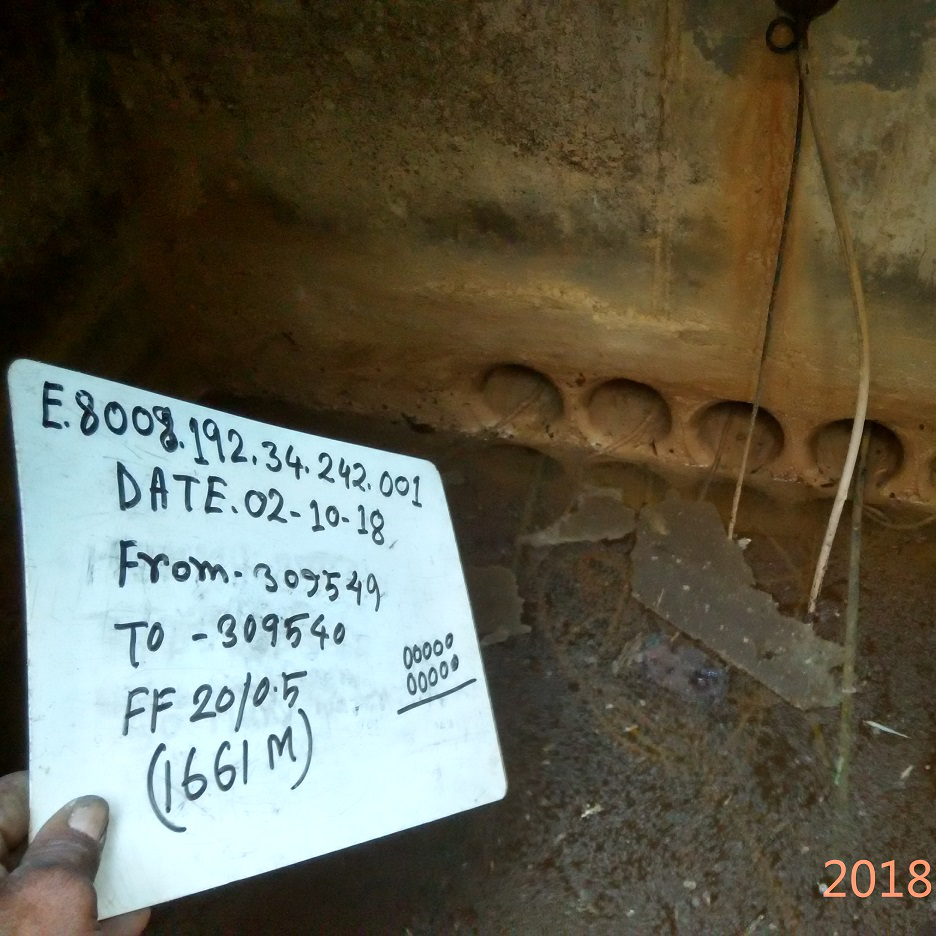 E.8008.192.34.242.001
DATE.02-10-18
From-309549
TO -309540
FF 20/0.5
(1661 M)
00000
00000
2018